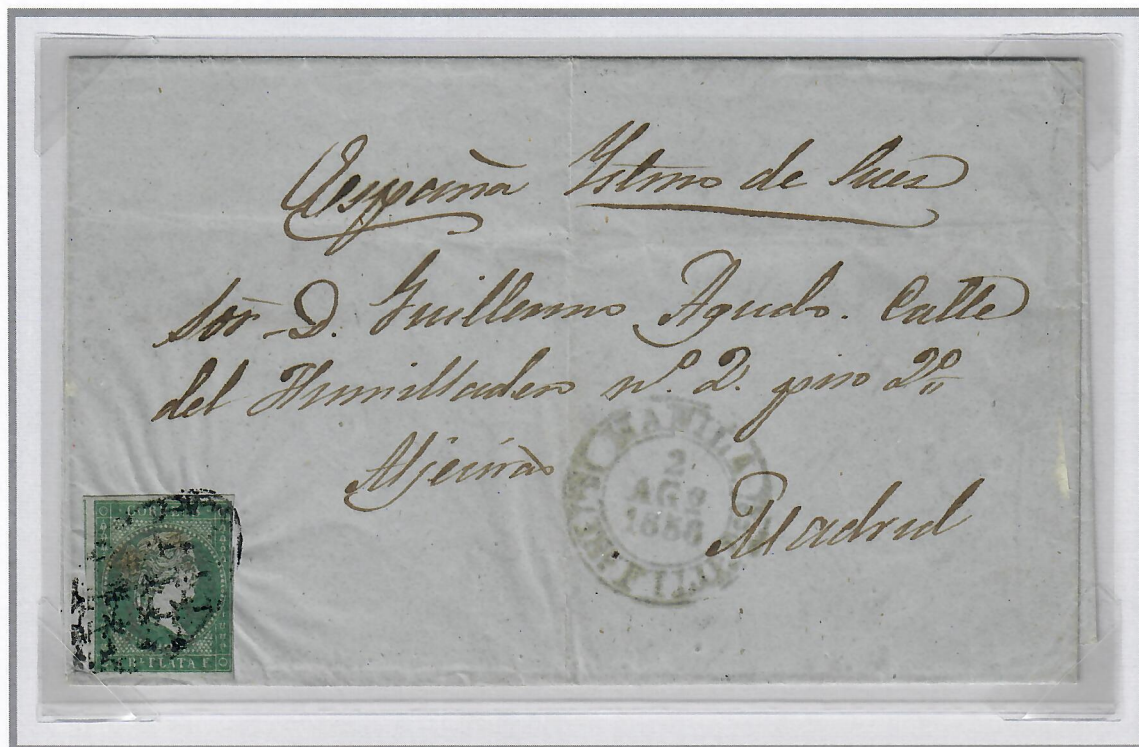 España Ystmo de Sues
Sor. D. Guillermo Agudo. Calle
del Humilladero nº. 2. piso 2º
Madrid
MANILA
2
AGO
1856
CORR
Rl. PLATA F.